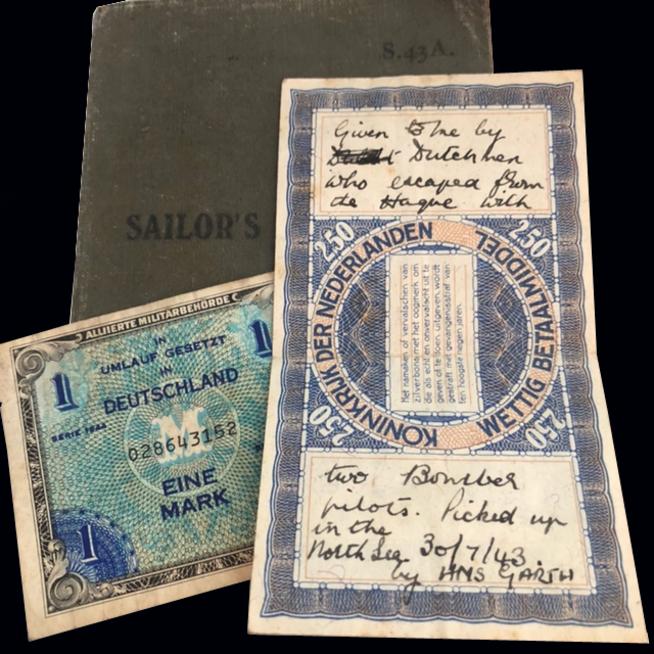 S.43A.
SAILOR'S
Given to me by
Dutchmen
who escaped from
the Hague with
2.50
2.50
KONINKRIJK DER NEDERLANDEN
WETTIG BETAALMIDDEL
Het namaken of vervalschen van
zilverbons met het oogmerk om
die als echt en onvervalscht uit te
geven of te doen uitgeven, wordt
gestraft met gevangenisstraf van
ten hoogste negen jaren.
2.50
2.50
two Bomber
pilots. Picked up
in the
North Sea 30/7/43
by HMS GARTH
ALLIIERTE MILITÄRBEHÖRDE
1
1
IN
UMLAUF GESETZT
IN
DEUTSCHLAND
SERIE 1944
M
028643152
EINE
MARK
1